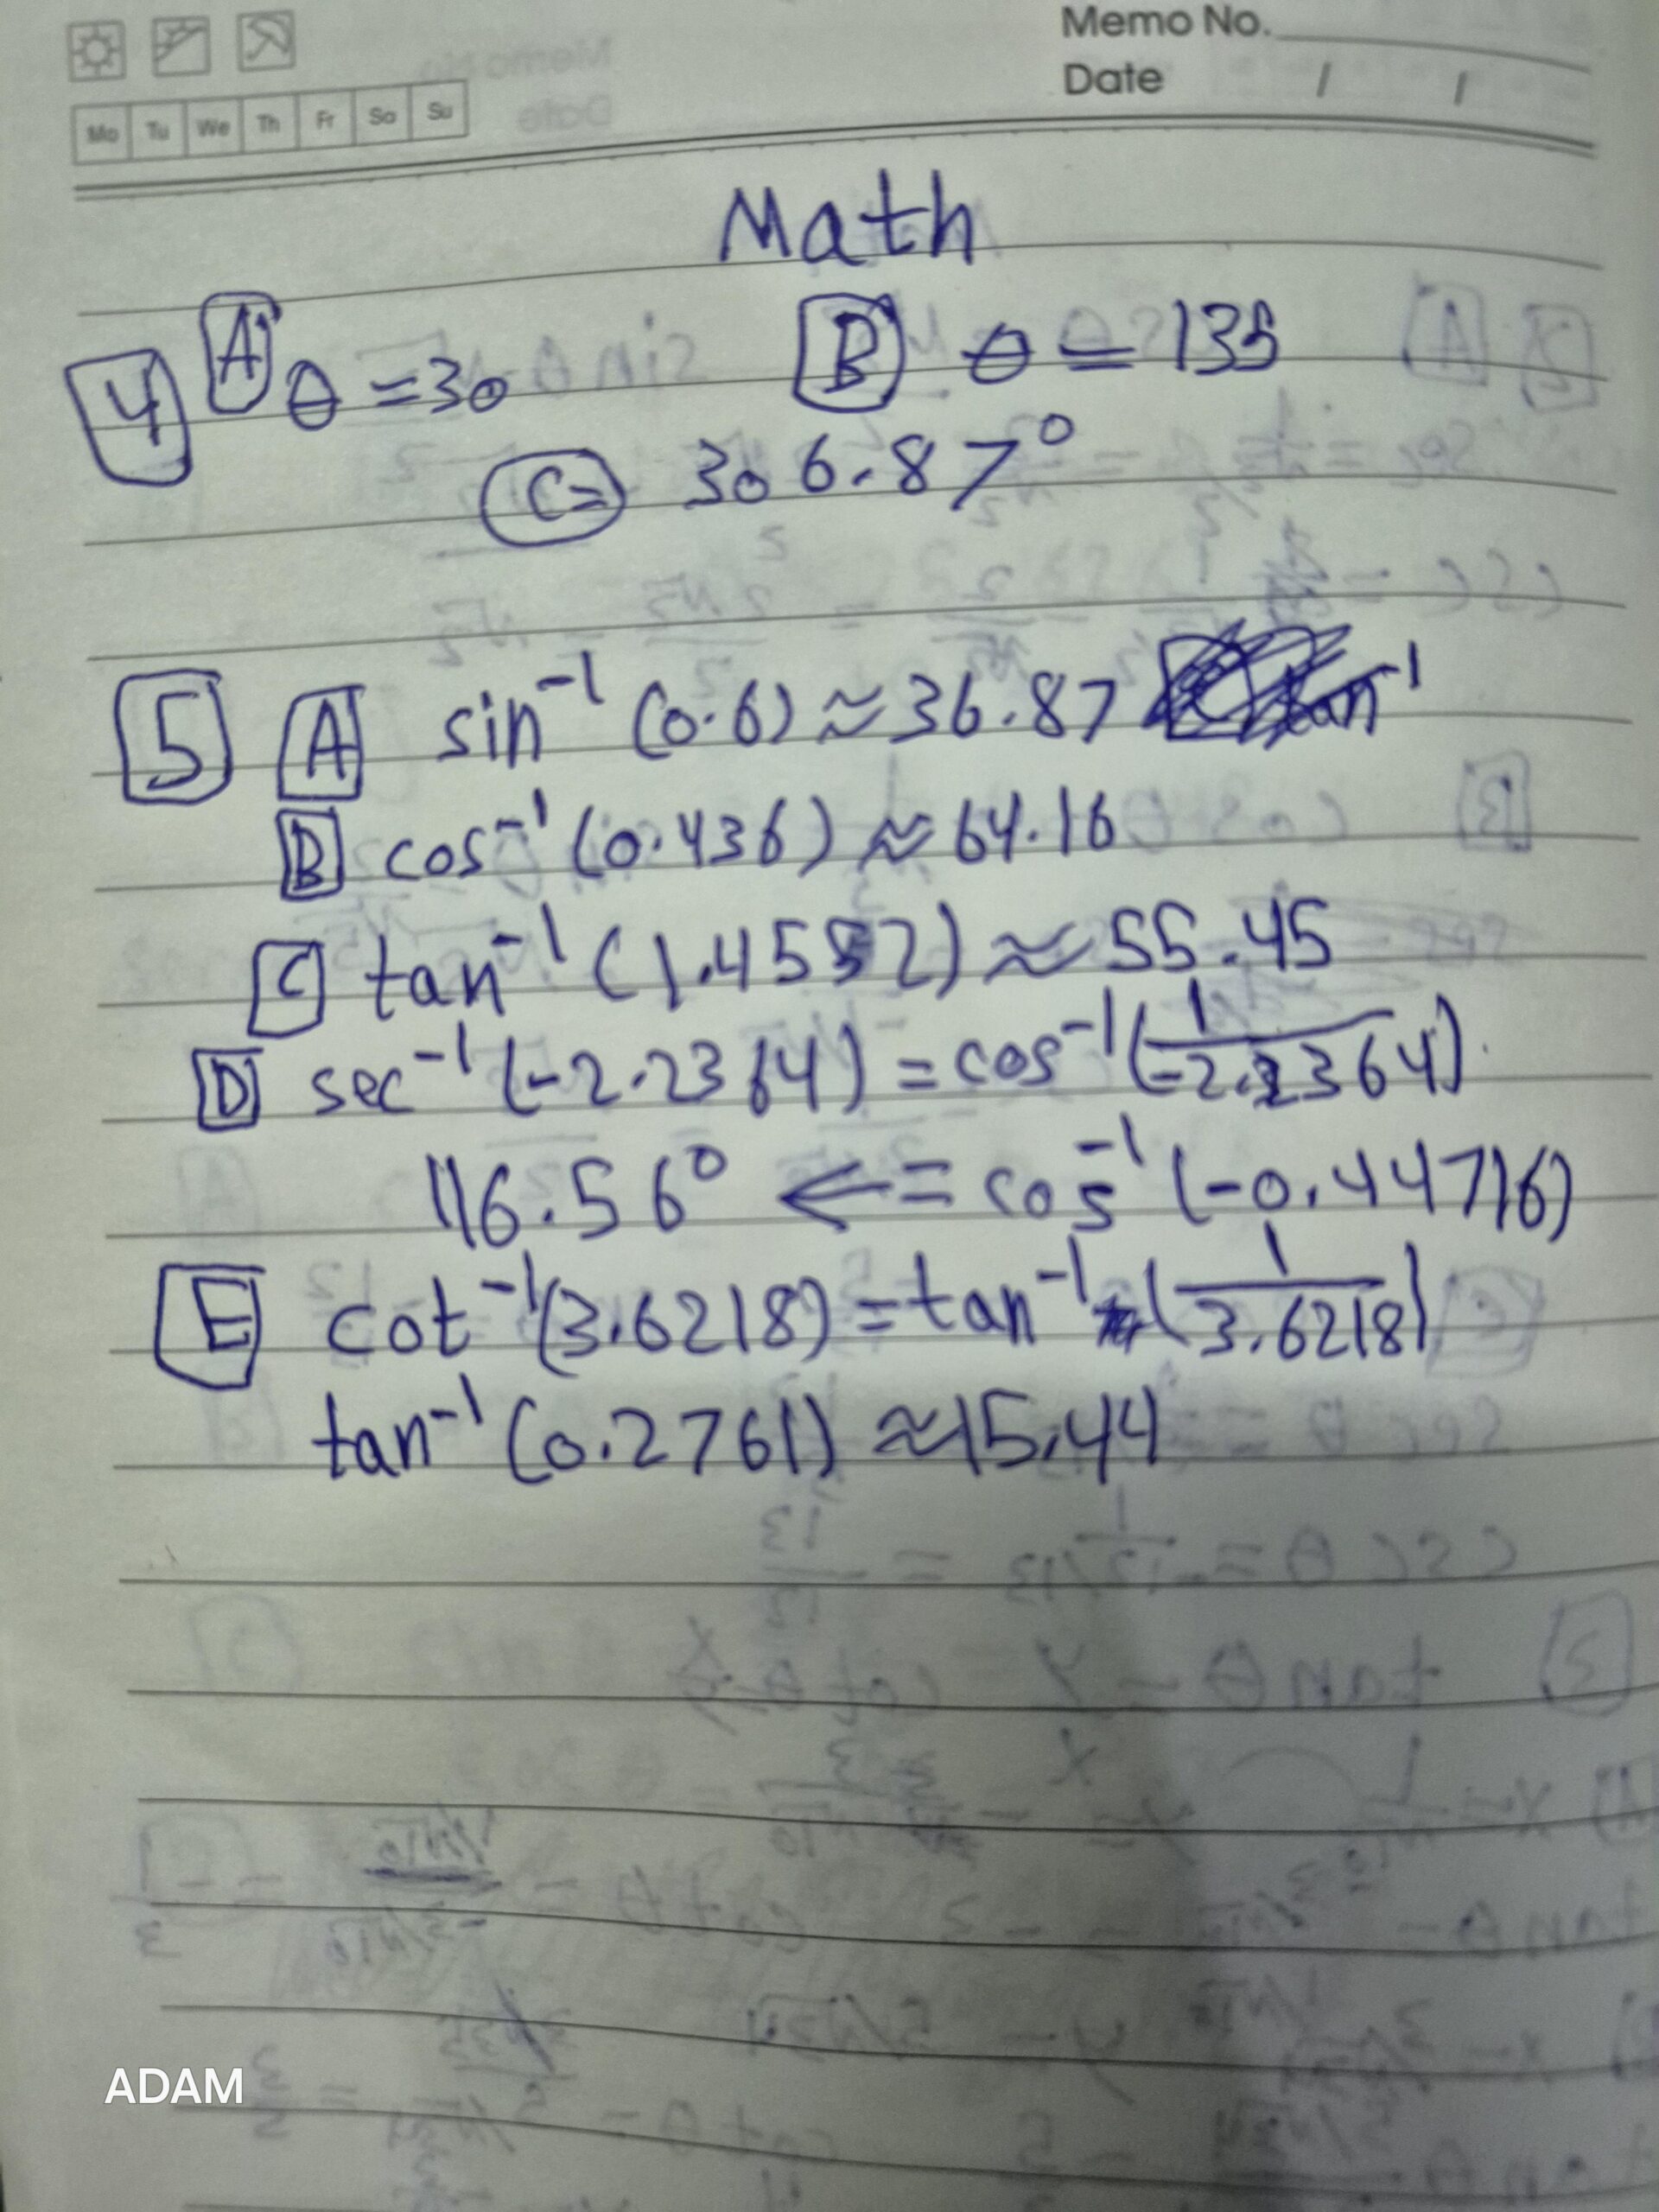 Memo No.
Date / /
Mo Tu We Th Fr Sa Su
Math
4 A θ = 30 B θ = 135
C = 306.87°
5 A sin⁻¹ (0.6) ≈ 36.87 tan⁻¹
B cos⁻¹ (0.436) ≈ 64.16
C tan⁻¹ (1.4552) ≈ 55.45
D sec⁻¹ (-2.2364) = cos⁻¹ (1/-2.2364)
116.56° ← = cos⁻¹ (-0.44716)
E cot⁻¹ (3.6218) = tan⁻¹ (1/3.6218)
tan⁻¹ (0.2761) ≈ 15.44
ADAM